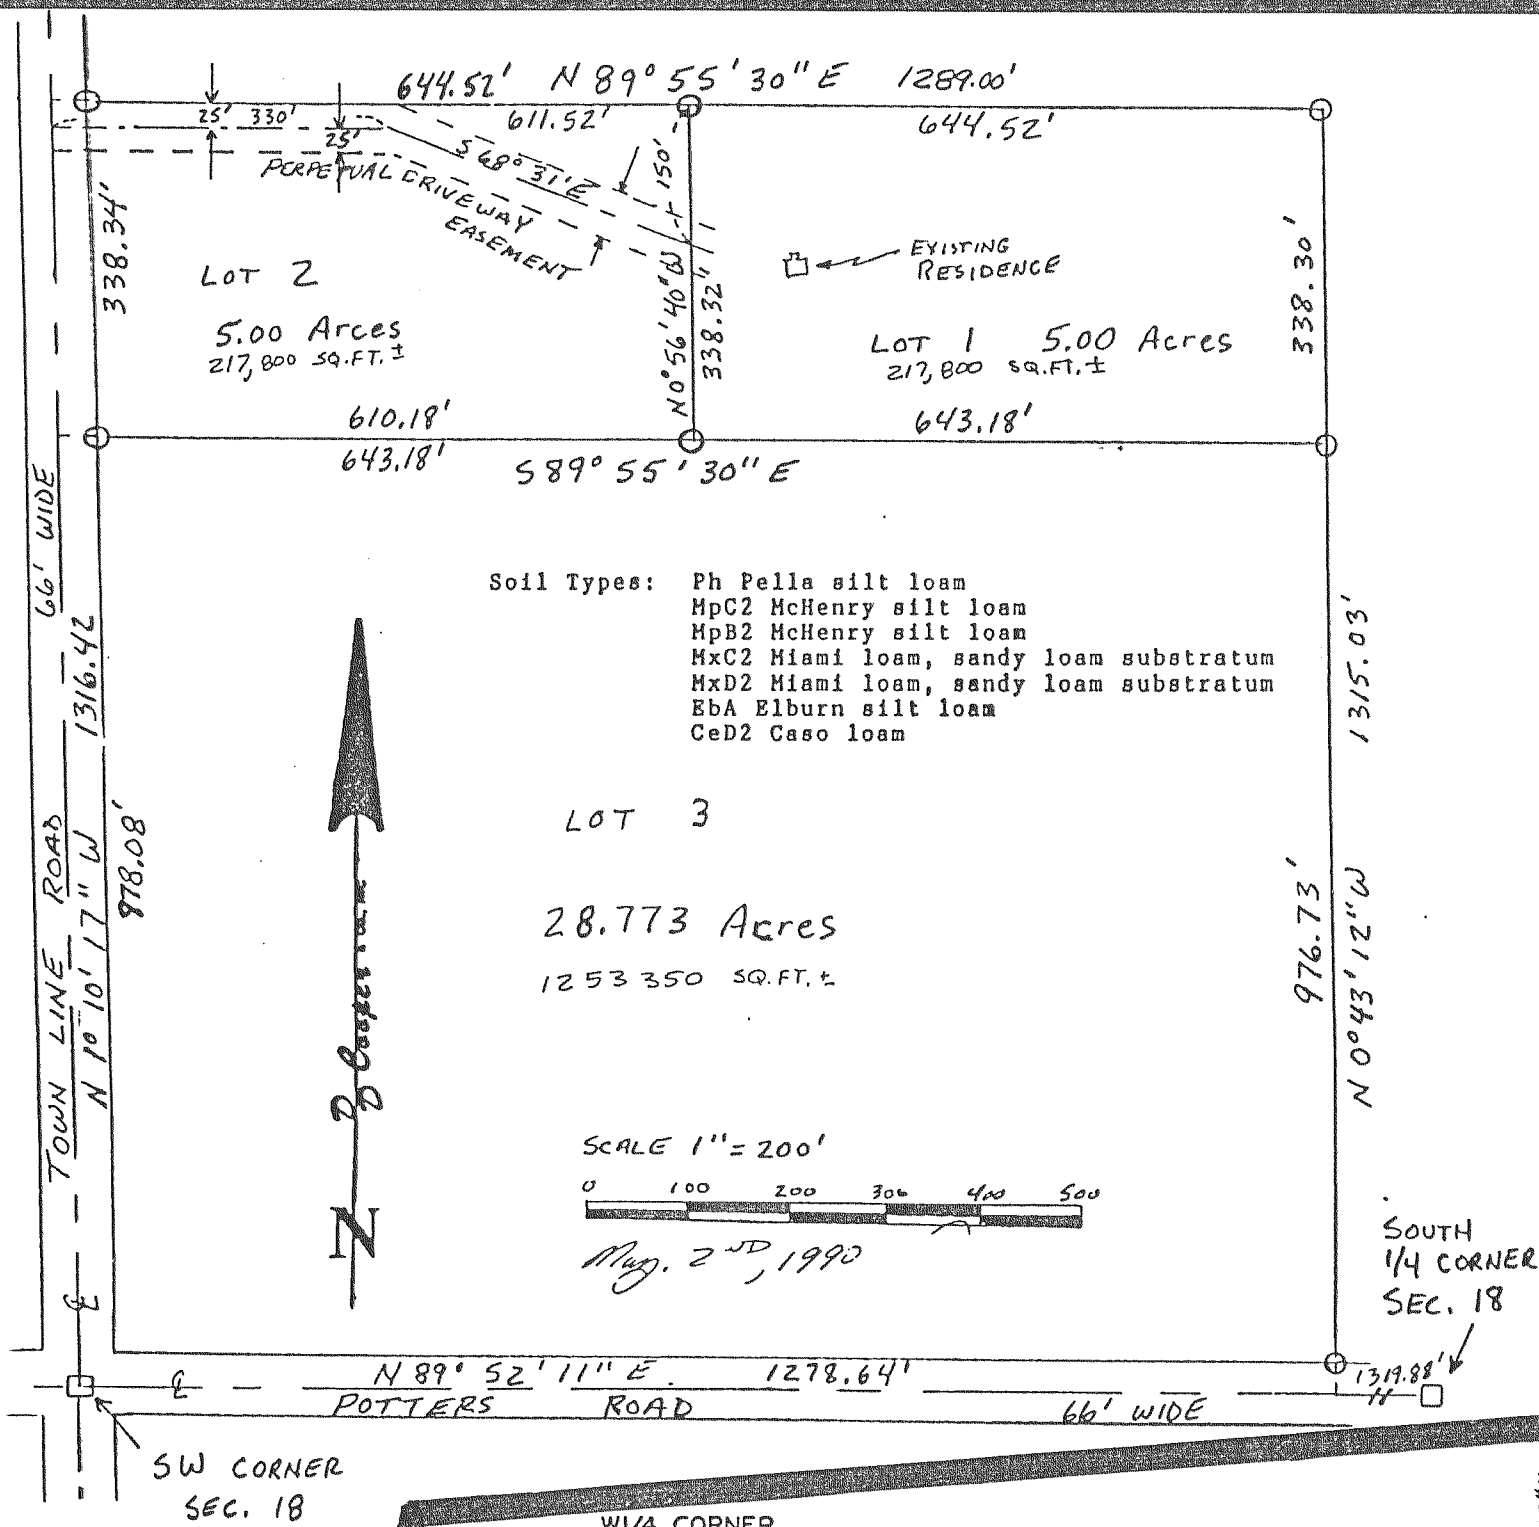 644.52' N 89° 55' 30" E 1289.00'
25' 330'
611.52'
644.52'
25'
S 68° 31' E
150'
PERPETUAL DRIVEWAY
EASEMENT
338.34'
LOT 2
5.00 Arces
217,800 SQ.FT.±
N 0° 56' 40" W
338.32"
EXISTING
RESIDENCE
LOT 1 5.00 Acres
217,800 SQ.FT.±
338.30'
610.18'
643.18'
643.18'
S 89° 55' 30" E
66' WIDE
TOWN LINE ROAD
N 1° 10' 17" W 1316.42
978.08'
Soil Types: Ph Pella silt loam
MpC2 McHenry silt loam
MpB2 McHenry silt loam
MxC2 Miami loam, sandy loam substratum
MxD2 Miami loam, sandy loam substratum
EbA Elburn silt loam
CeD2 Caso loam
LOT 3
28.773 Acres
1253350 SQ.FT.±
1315.03'
976.73'
N 0° 43' 12" W
N
SCALE 1" = 200'
0 100 200 300 400 500
2ND, 1990
SOUTH
1/4 CORNER
SEC. 18
1319.88'
N 89° 52' 11" E. 1278.64'
POTTERS ROAD 66' WIDE
SW CORNER
SEC. 18
W1/4 CORNER